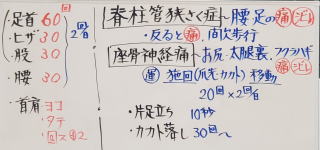 ・足首 60回
・ヒザ 30
・股 30
・腰 30
2回/日
・首肩 ヨコ
タテ
脊柱管狭さく症 腰足の痛シビレ
・反ると痛、間欠歩行
座骨神経痛 お尻・太腿裏、フクラハギ
痛シビレ
運 旋回(爪先・カカト) 移動
20回×2回/日
・片足立ち 10秒
・カカト落し 30回〜